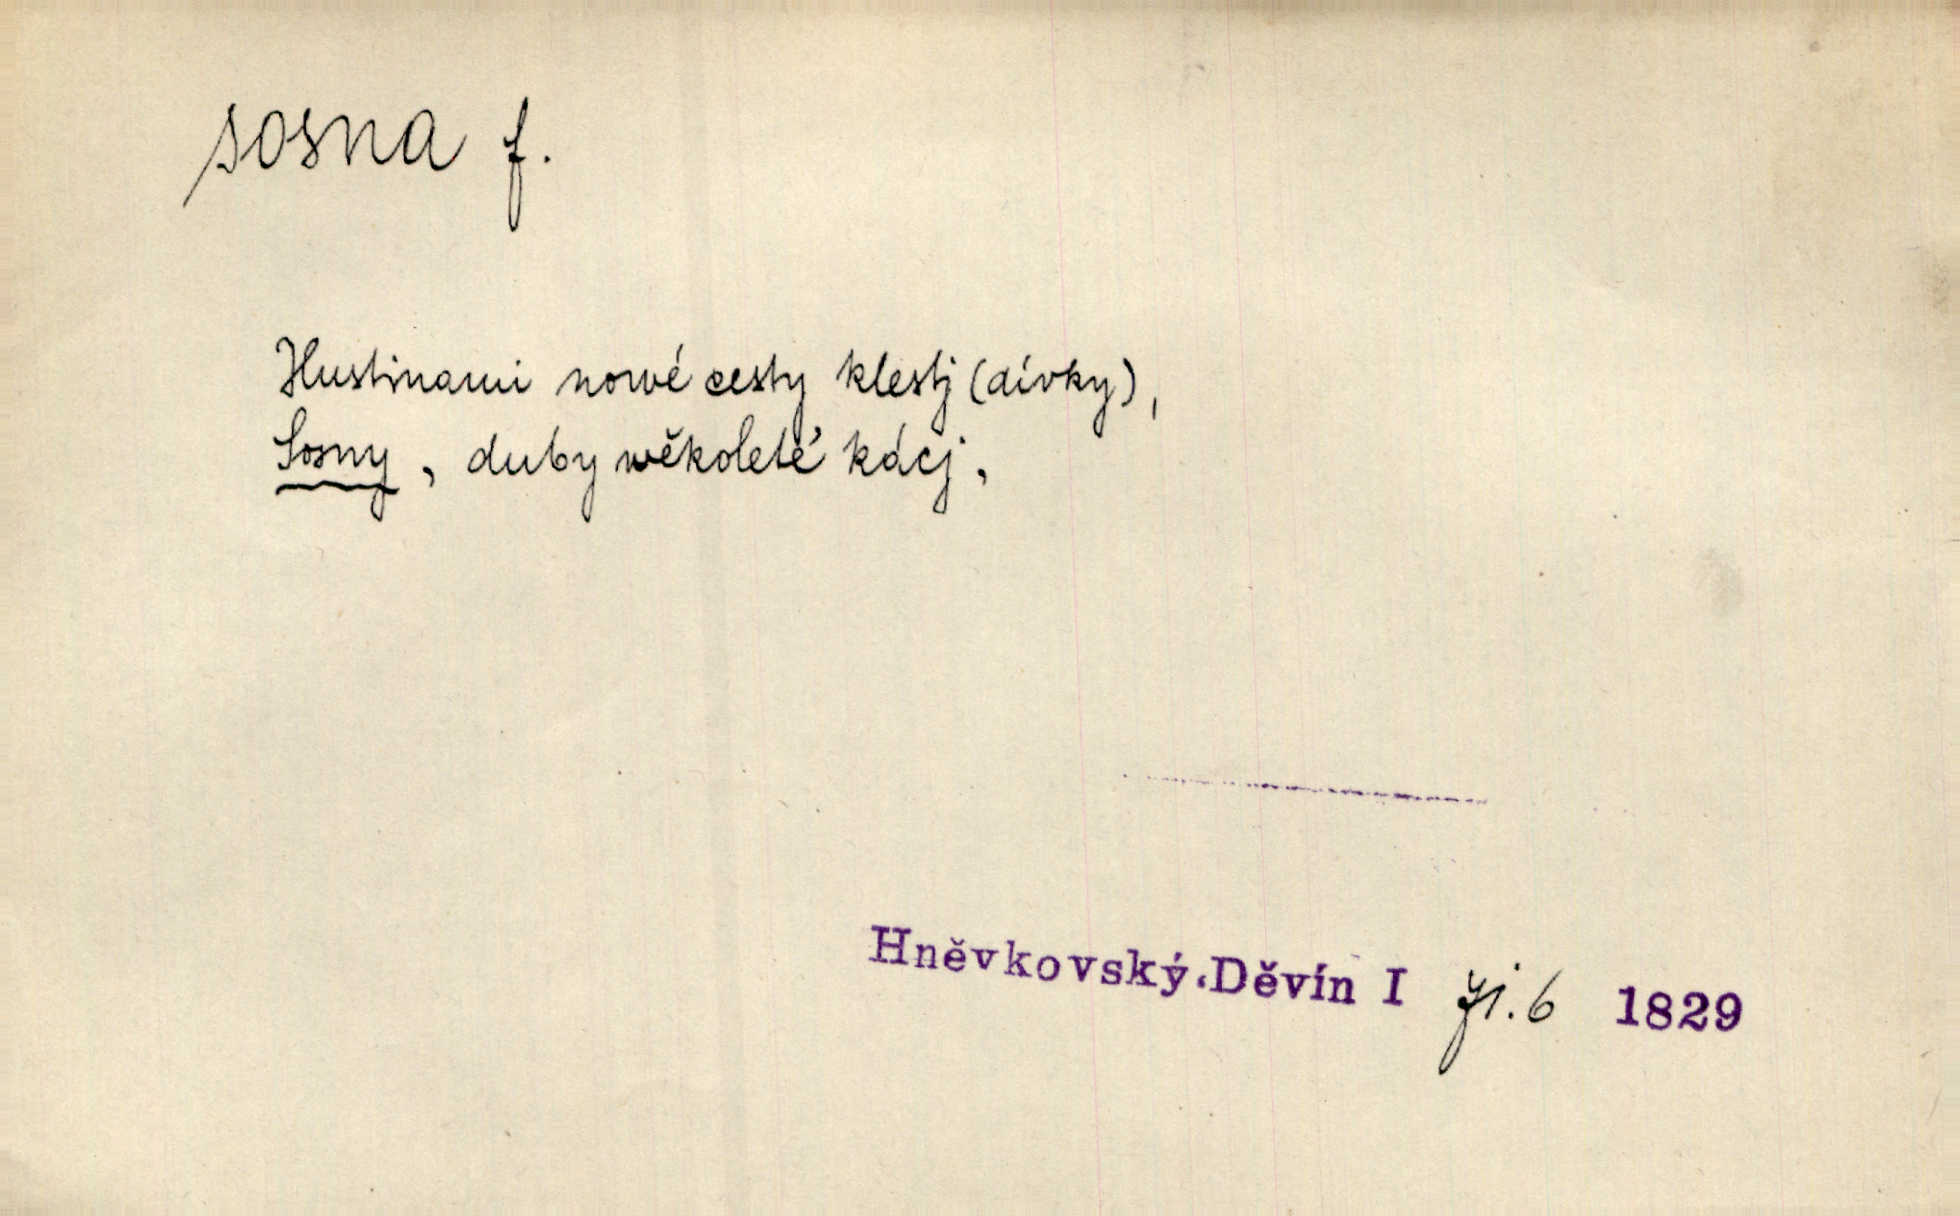 sosna f.
Hustinami nowé cesty klestj (dívky),
Sosny, duby wěkoleté kácj,
Hněvkovský.Děvín I 1829